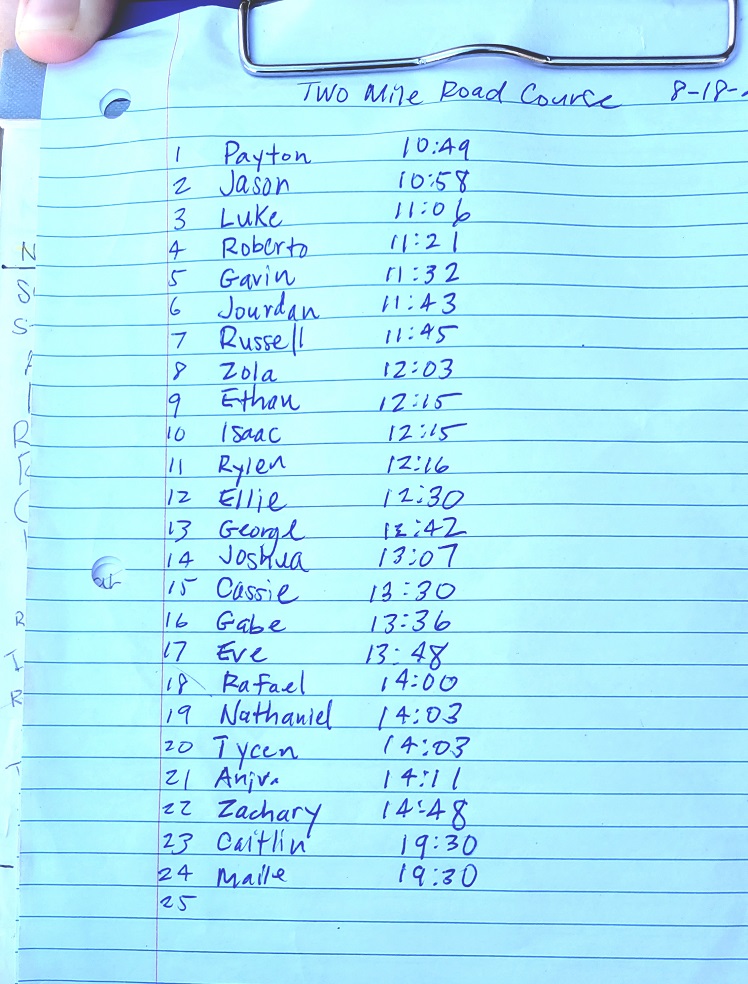 Two Mile Road Course 8-18-
1 Payton 10:49
2 Jason 10:58
3 Luke 11:06
4 Roberto 11:21
5 Gavin 11:32
6 Jourdan 11:43
7 Russell 11:45
8 Zola 12:03
9 Ethan 12:15
10 Isaac 12:15
11 Rylen 12:16
12 Ellie 12:30
13 George 12:42
14 Joshua 13:07
15 Cassie 13:30
16 Gabe 13:36
17 Eve 13:48
18 Rafael 14:00
19 Nathaniel 14:03
20 Tycen 14:03
21 14:11
22 Zachary 14:48
23 Caitlin 19:30
24 Maile 19:30
25